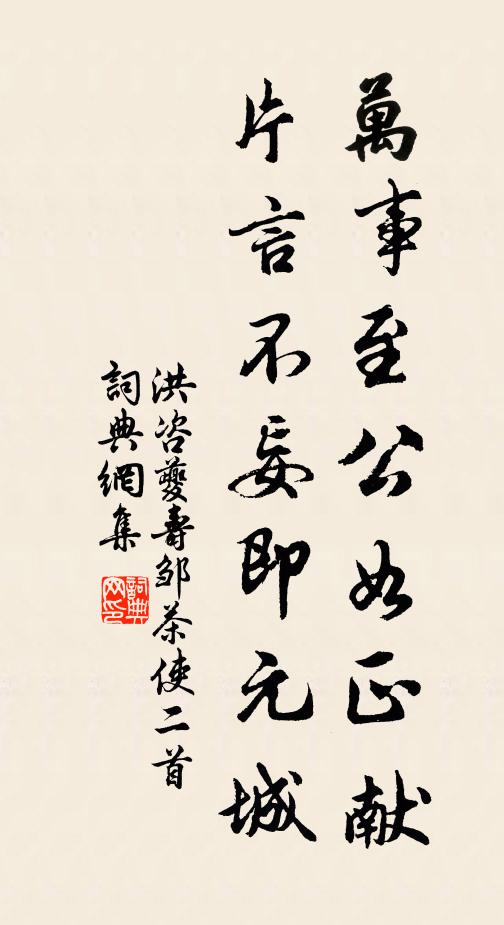 萬事至公如正献
片言不妄即元城
洪咨夔壽邹茶使二首
詞典網集
詞典
网印